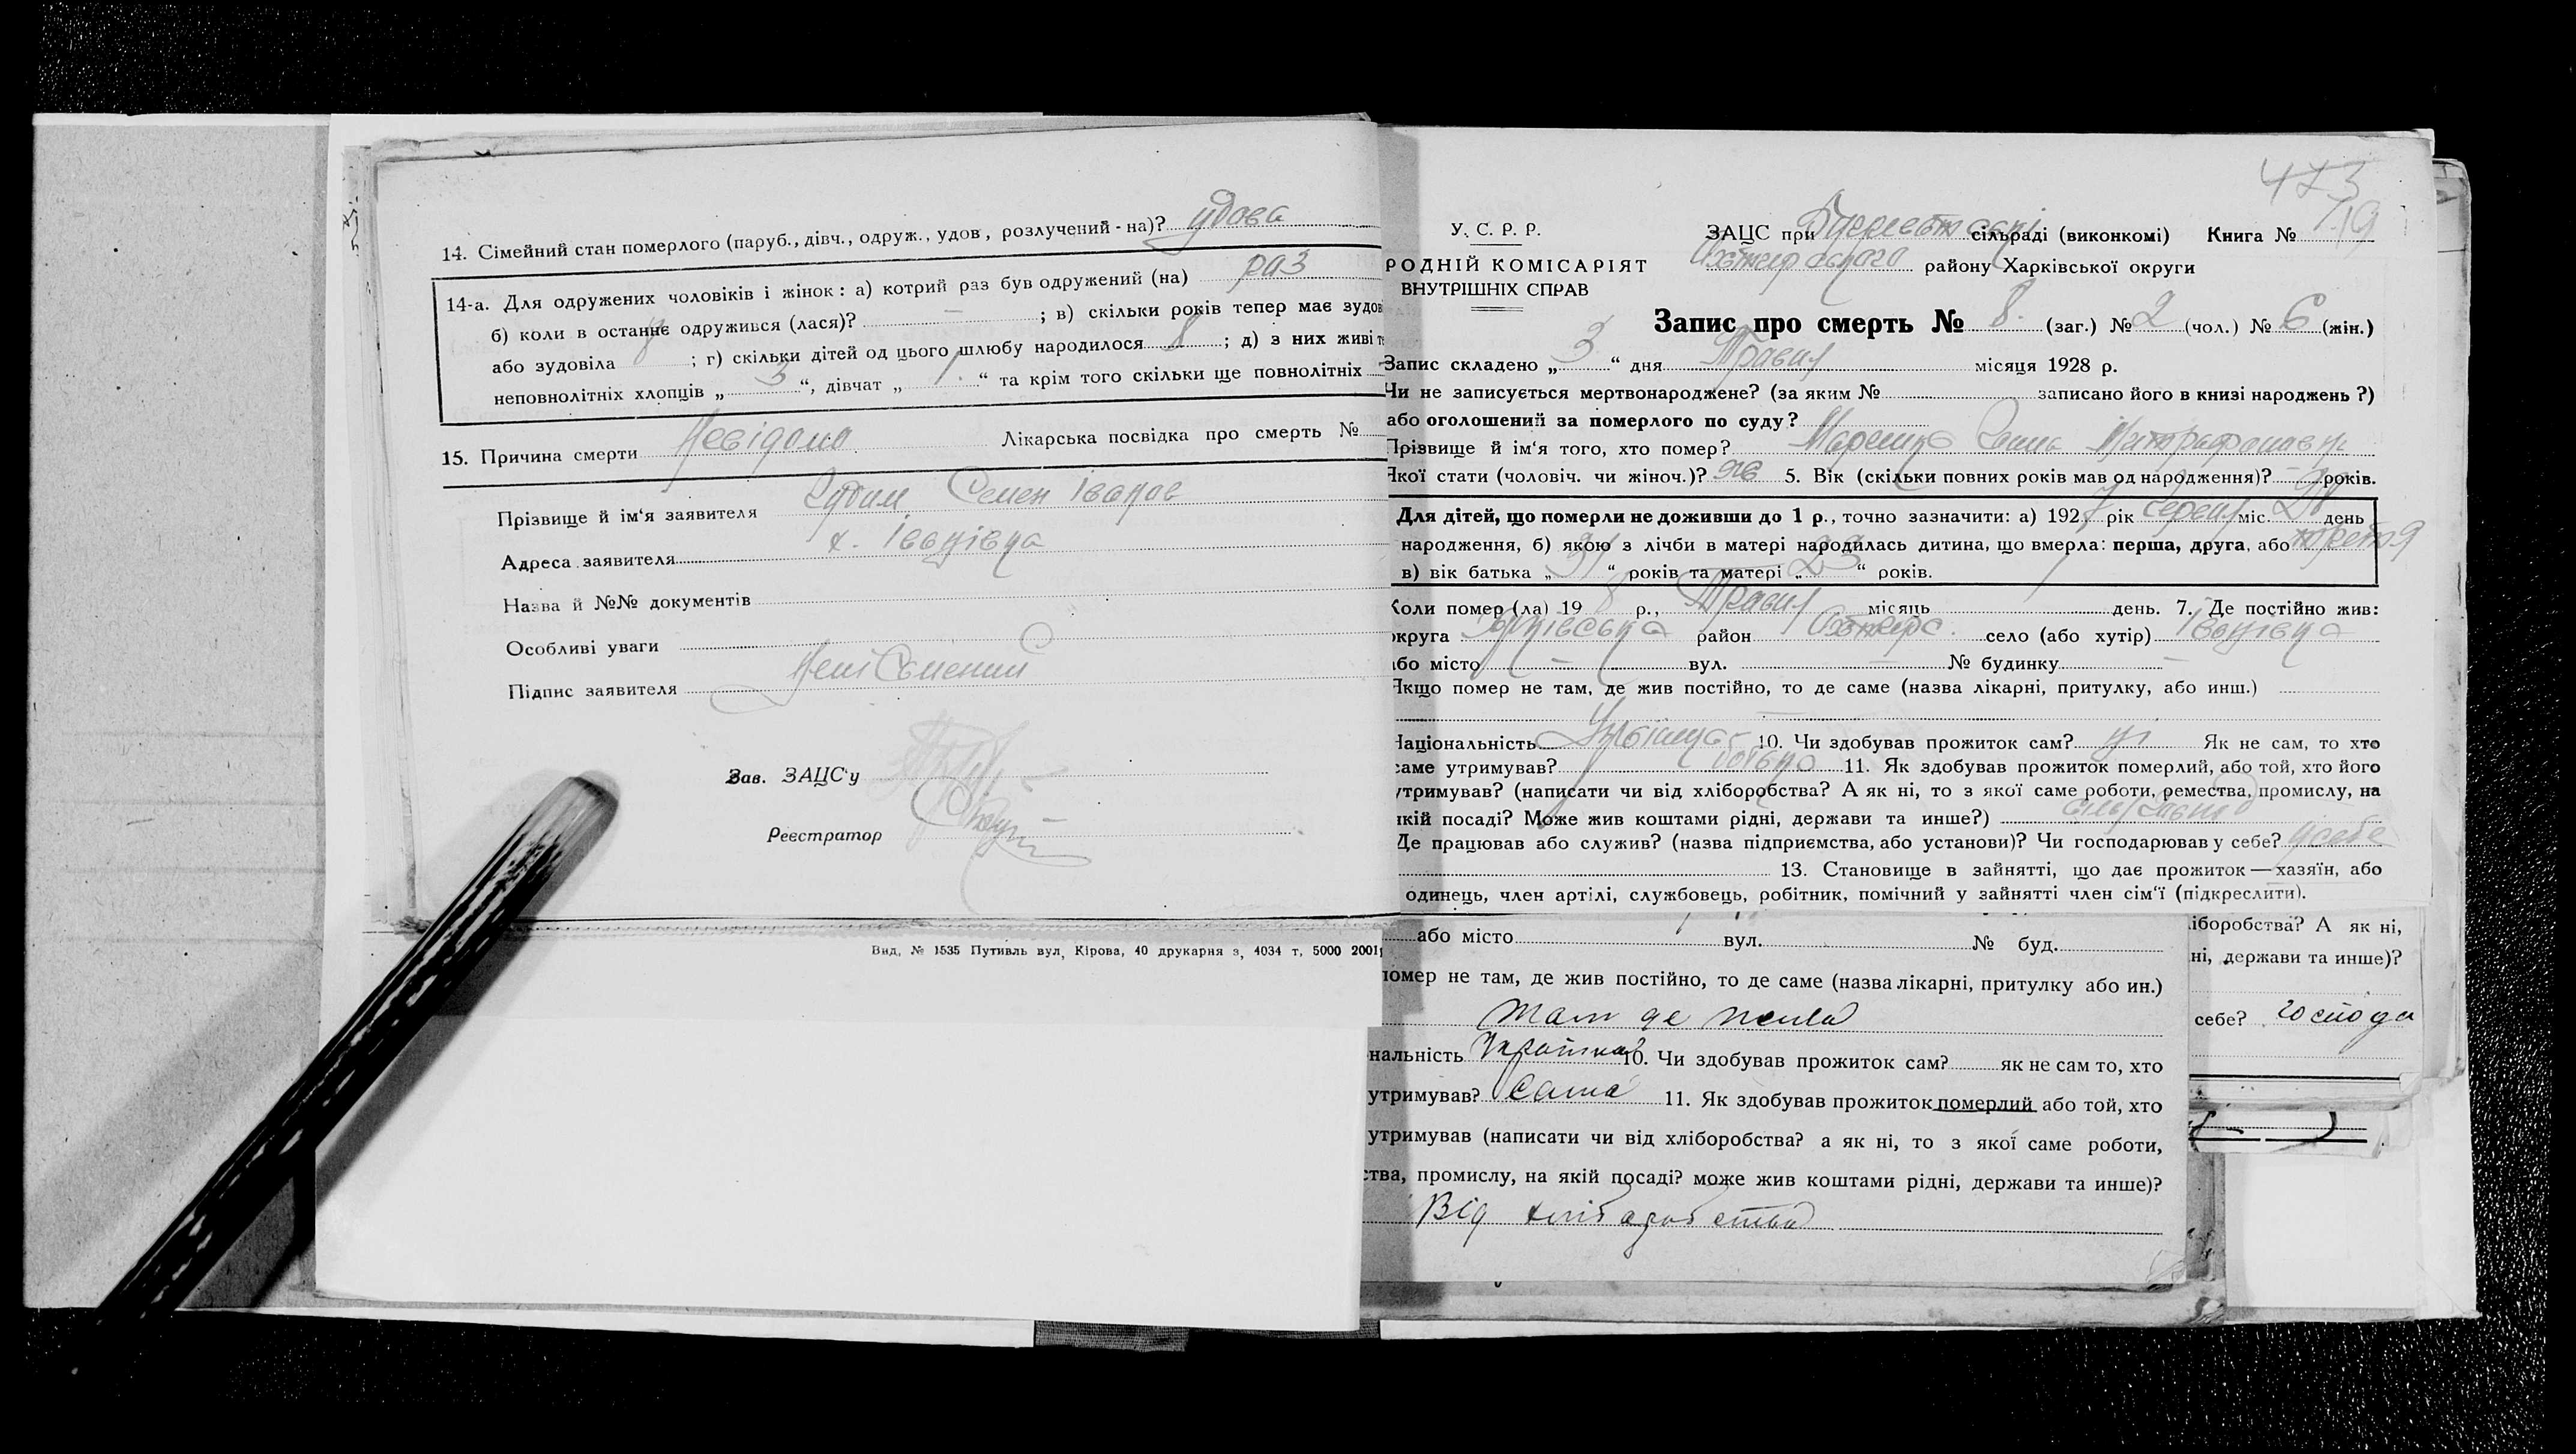 14. Сімейний стан померлого (паруб., дівч., одруж., удов, розлучений - на)? удова
14-а. Для одружених чоловіків і жінок: а) котрий раз був одружений (на) раз
б) коли в останнє одружився (лася)? — ; в) скільки років тепер має зудов
або зудовіла ; г) скільки дітей од цього шлюбу народилося 8 ; д) з них живі т
неповнолітніх хлопців „ 3 “, дівчат „ 1 “ та крім того скільки ще повнолітніх
15. Причина смерти Невідомо Лікарська посвідка про смерть №
Прізвище й ім‘я заявителя Семен Іванов
Адреса заявителя х. Іванівка
Назва й №№ документів
Особливі уваги
Підпис заявителя
Зав. ЗАЦС'у
Реєстратор
Вид, № 1535 Путивль вул, Кірова, 40 друкарня з, 4034 т, 5000 2001
473
У. С. Р. Р.
РОДНІЙ КОМІСАРІЯТ
ВНУТРІШНІХ СПРАВ
ЗАЦС при сільраді (виконкомі) Книга № 19
району Харківської округи
Запис про смерть № 8. (заг.) № 2 (чол.) № 6 (жін.)
Запис складено „ 3 “ дня Травня місяця 1928 р.
Чи не записується мертвонароджене? (за яким № записано його в книзі народжень ?)
або оголошений за померлого по суду?
Прізвище й ім‘я того, хто помер?
Якої стати (чоловіч. чи жіноч.)? жі 5. Вік (скільки повних років мав од народження)? — років.
Для дітей, що померли не доживши до 1 р., точно зазначити: а) 192 7 рік Серпня міс. день
народження, б) якою з лічби в матері народилась дитина, що вмерла: перша, друга, або третя
в) вік батька „ 31 “ років та матері „ 23 “ років.
Коли помер (ла) 19 8 р., Травня місяць день. 7. Де постійно жив:
округа Харківська район Охтирс. село (або хутір) Іванівка
або місто — вул. — № будинку —
Якщо помер не там, де жив постійно, то де саме (назва лікарні, притулку, або инш.)
Національність 10. Чи здобував прожиток сам? ні Як не сам, то хто
саме утримував? батько 11. Як здобував прожиток померлий, або той, хто його
утримував? (написати чи від хліборобства? А як ні, то з якої саме роботи, ремества, промислу, на
якій посаді? Може жив коштами рідні, держави та инше?)
Де працював або служив? (назва підприємства, або установи)? Чи господарював у себе? у себе
13. Становище в зайнятті, що дає прожиток — хазяїн, або
одинець, член артілі, службовець, робітник, помічний у зайнятті член сім‘ї (підкреслити).
або місто вул. № буд.
помер не там, де жив постійно, то де саме (назва лікарні, притулку або ин.)
там де жила
нальність Українка 10. Чи здобував прожиток сам? як не сам то, хто
утримував? сама 11. Як здобував прожиток померлий або той, хто
утримував (написати чи від хліборобства? а як ні, то з якої саме роботи,
ства, промислу, на якій посаді? може жив коштами рідні, держави та инше)?
Від хліборобства
іборобства? А як ні,
ні, держави та инше)?
себе? господа